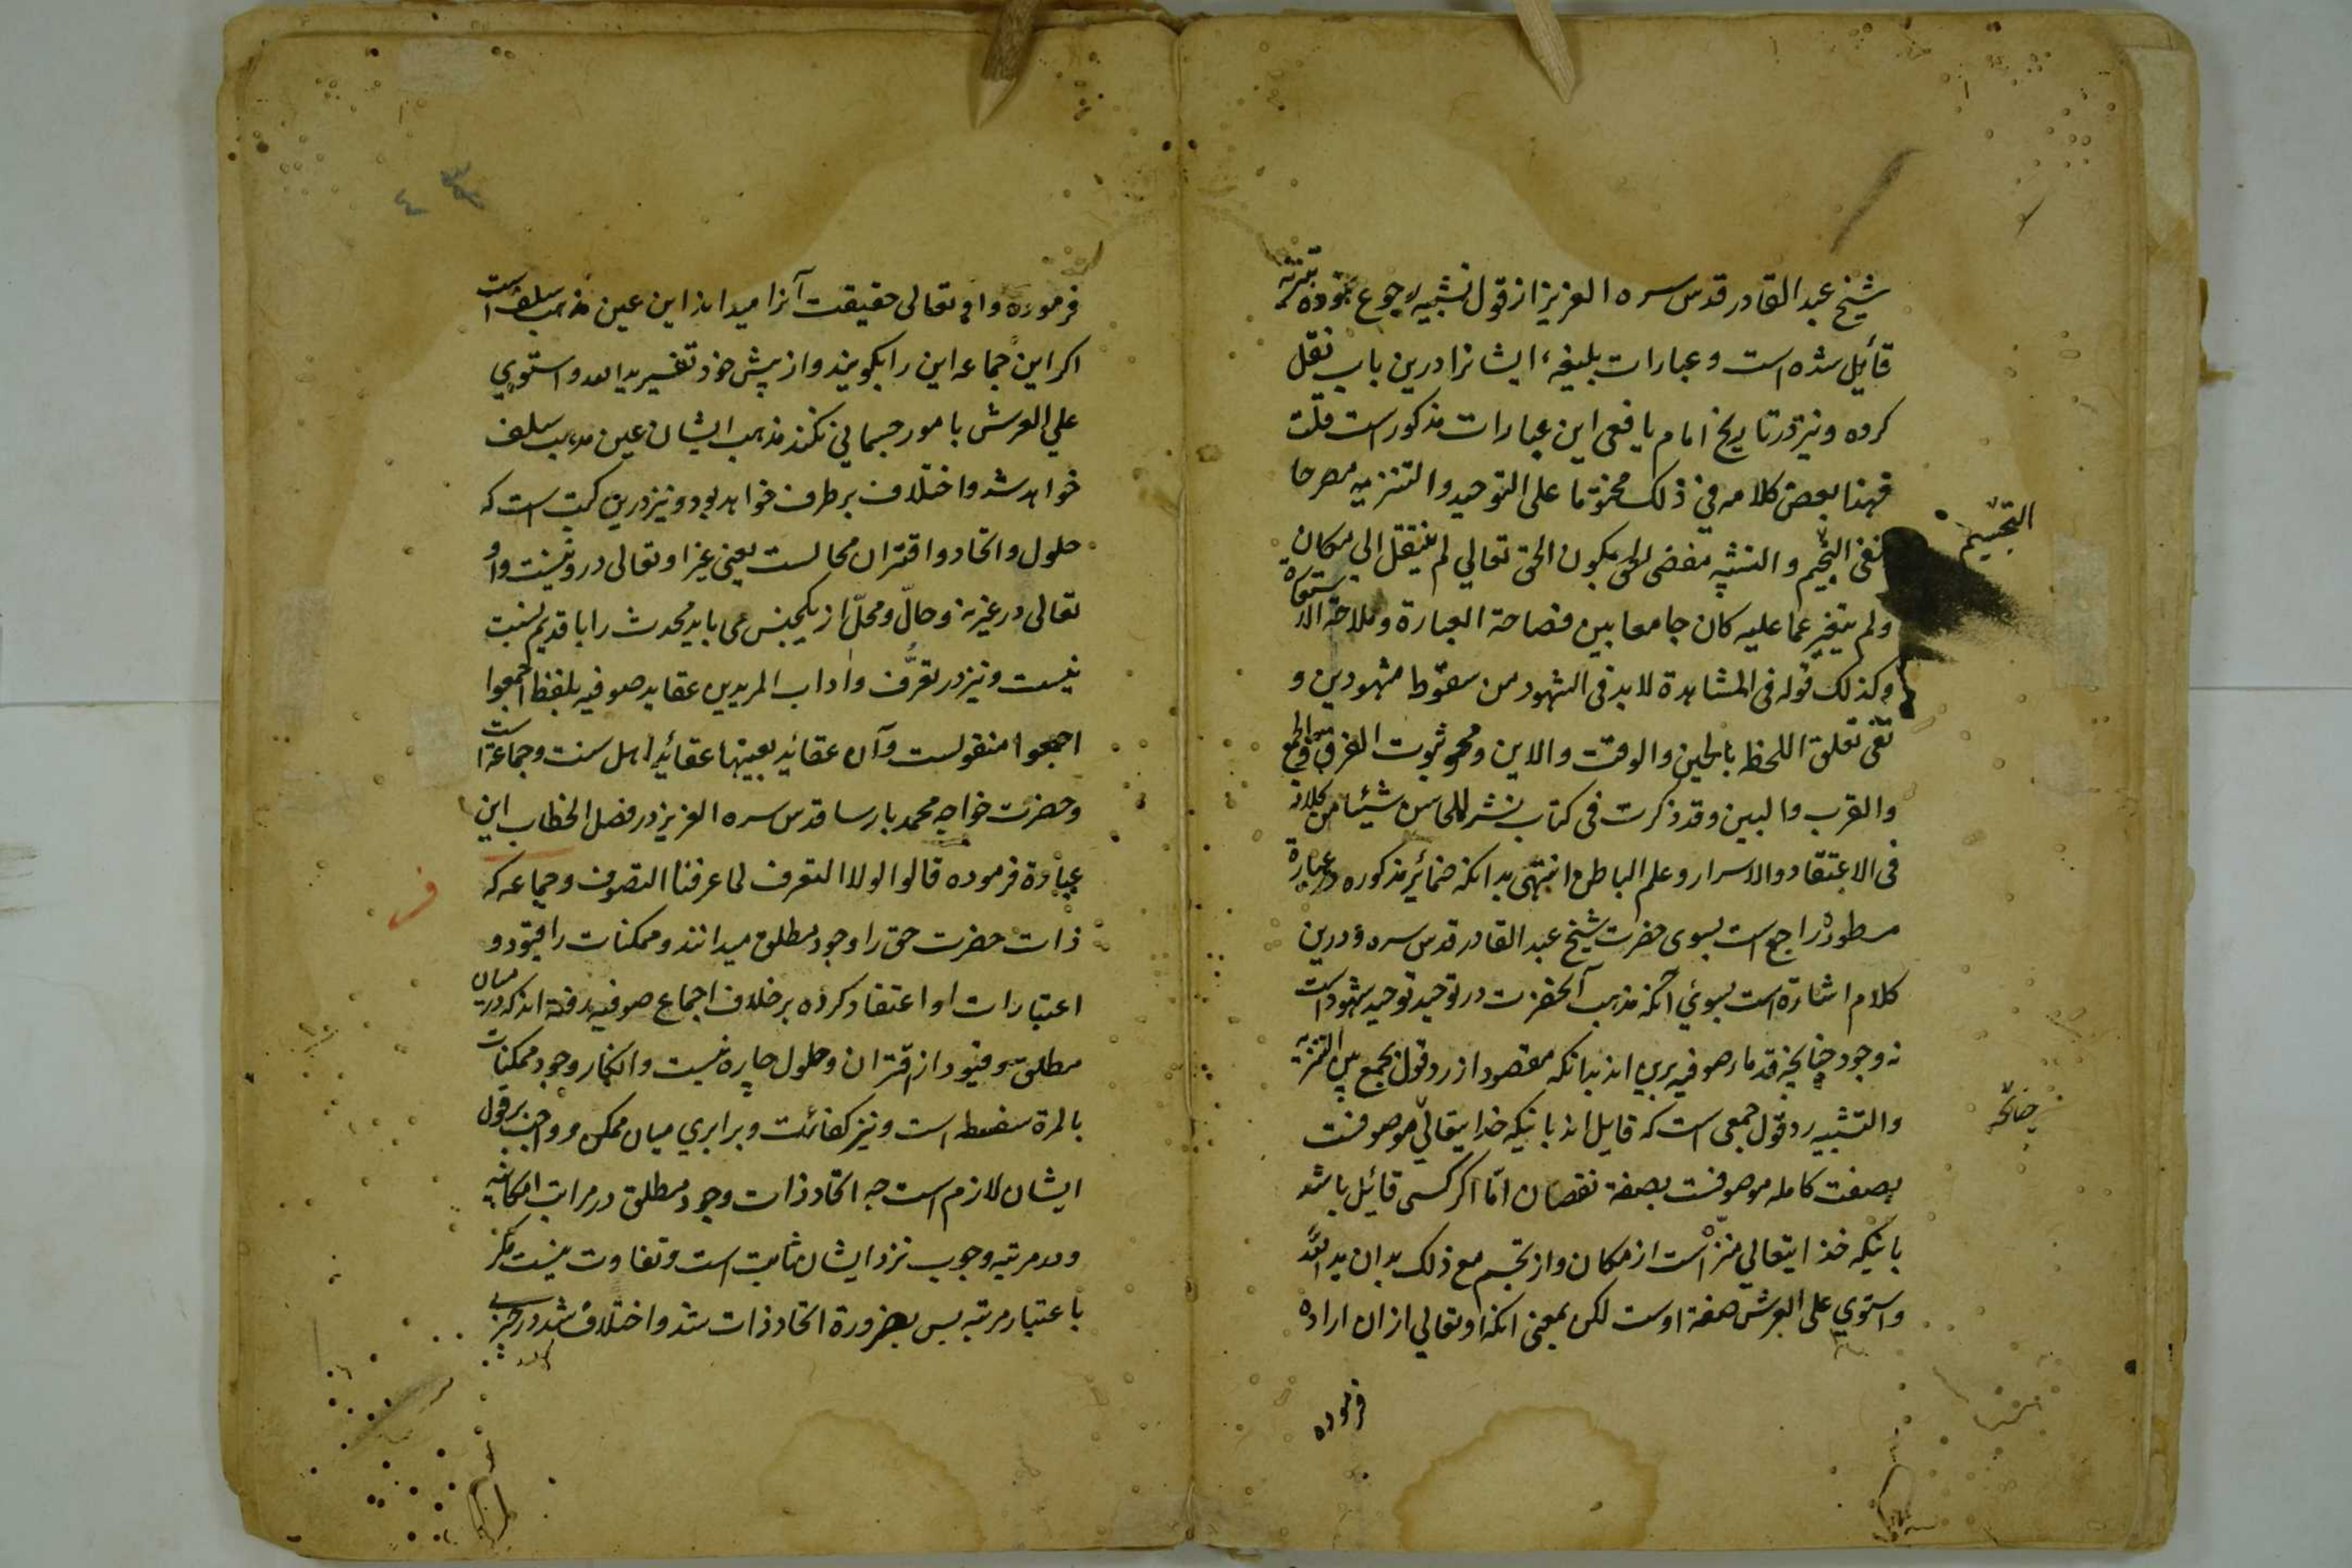 شیخ عبد القادر قدس سره العزیز از قول تشبیه رجوع نموده بتنزیه
قائیل شده است و عبارات بلیغهء ایشانرا درین باب نقل
کرده و نیز در تاریخ امام یافعی این عبارات مذکور است قلت
فهذا بعض کلامه فی ذلک مختوما علی التوحید والتنزیه مصرحا
بنفی التجیم و التشبه مفضی الی یکون الحق تعالی لم ینتقل الی مکان
التجسیم
ولم یتغیر عما علیه کان جامعا بین فصاحة العبارة وملاحة الاستعارة
وکذلک قوله فی المشاهدة لا بد فی الشهود من سقوط مشهودین و
نفی تعلق اللحظ بالحین والوقت والاین ومحو ثبوت الفرق والجمع
والقرب والبین وقد ذکرت فی کتاب نشر المحاسن شیئا من کلامه
فی الاعتقاد والاسرار وعلم الباطن انتهی بدانکه ضمائر مذکوره در عبارة
مسطوره راجع است بسوی حضرت شیخ عبد القادر قدس سره و درین
کلام اشارة است بسوئی آنکه مذهب آنحضرت در توحید توحید شهود است
نه وجود چنانچه قدماء صوفیه برین اند بدانکه مقصود از رد قول بجمع بین التنزیه
چنانچه
والتشبیه رد قول جمعی است که قایل اند باینکه خدایتعالی موصوفست
بصفت کامله موصوفست بصفة نقصان امّا اکر کسی قائیل باشد
باینکه خدایتعالی منزّه است از مکان و از تجسم مع ذلک بدان ید الله
واستوی علی العرش صفة اوست لکن بمعنی انکه او تعالی ازان اراده
فرموده
٤
فرموده و او تعالی حقیقت آنرا میداند این عین مذهب سلف است
اکر این جماعه این را بکویند و از پیش خود تفسیر ید الله و استوی
علی العرش بامور جسمانی نکنند مذهب ایشان عین مذهب سلف
خواهد شد و اختلاف برطرف خواهد بود و نیز درین کتب است که
حلول و اتحاد و اقتران محالست یعنی غیر او تعالی درو نیست و او
تعالی در غیر نه و حالّ و محلّ از یکجنس می باید محدث را با قدیم نسبت
نیست و نیز در تعرُّف و اداب المریدین عقاید صوفیه بلفظ اجمعوا
اجمعوا منقولست و آن عقائد بعینها عقائد اهل سنت و جماعة است
و حضرت خواجه محمد پارسا قدس سره العزیز در فصل الخطاب این
عبارة فرموده قالوا لولا التعرف لما عرفنا التصوف و جماعه که
ف
ذات حضرت حق را وجود مطلق میدانند و ممکنات را قیود و
اعتبارات او اعتقاد کرده بر خلاف اجماع صوفیه رفته اند که در میان
مطلق و قیود از اقتران و حلول چاره نیست و انکار وجود ممکنات
بالمرة سفسطه است و نیز کفائت و برابری میان ممکن و واجب بر قول
ایشان لازم است چه اتحاد ذات وجود مطلق در مراتب امکانیه
و در مرتبه وجوب نزد ایشان ثابت است و تفاوت نیست مکر
باعتبار مرتبه پس بضرورة اتحاد ذات شد و اختلاف شد در